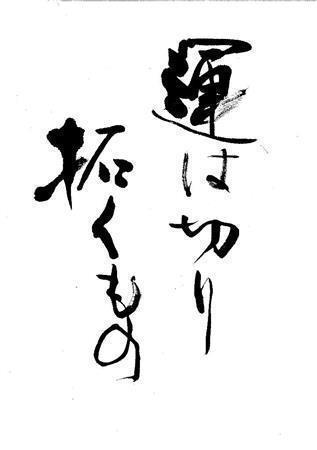 運は切り
拓くもの